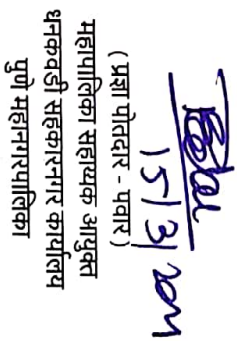 15/3/2024
(प्रज्ञा पोतदार - पवार)
महापालिका सहाय्यक आयुक्त
धनकवडी सहकारनगर कार्यालय
पुणे महानगरपालिका